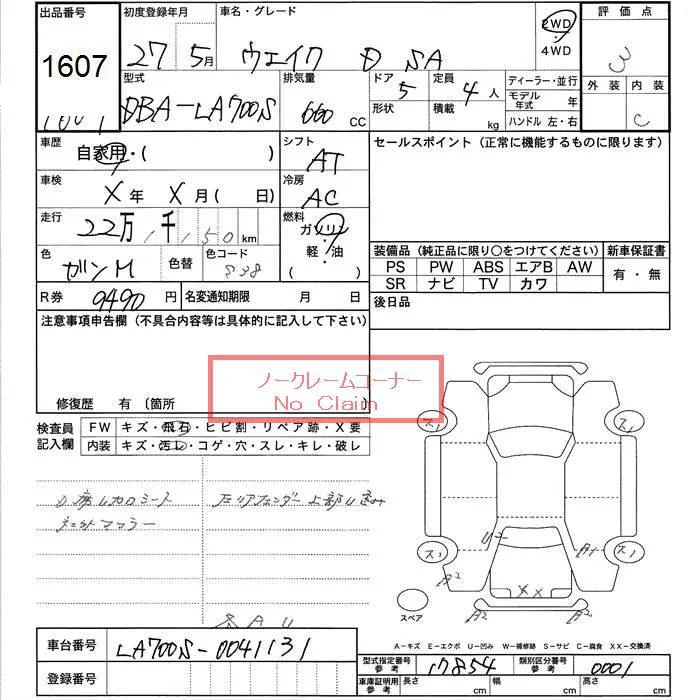 出品番号 初度登録年月 車名・グレード 評価点
1607 27年 5月 ウェイク D SA 2WD・4WD 3
型式 排気量 ドア 定員 ディーラー・並行 外装 内装
DBA-LA700S 660 CC 5 4人 モデル年式 年 C
形状 積載 kg ハンドル 左・右
車歴 シフト セールスポイント(正常に機能するものに限ります)
自家用・( ) AT
車検 冷房
X年 X月( 日) AC
走行 燃料
22万1千150km ガソリン
色 色替 色コード 軽・油
ガンM S38 ( )
装備品(純正品に限り○をつけてください) 新車保証書
PS PW ABS エアB AW 有・無
SR ナビ TV カワ
R券 9490円 名変通知期限 月 日 後日品
注意事項申告欄(不具合内容等は具体的に記入して下さい)
ノークレームコーナー
No Claim
修復歴 有 〔箇所
検査員 FW キズ・飛石・ヒビ割・リペア跡・X要
記入欄 内装 キズ・汚レ・コゲ・穴・スレ・キレ・破レ
D席レカロシート 左リアフェンダー上部凹み
社外マフラー
各AU
ス1 ス1
ス1 U2 A1 ス1
A2 A2
XX
A2 A2
スペア
A-キズ E-エクボ U-凹み W-補修跡 S-サビ C-腐食 XX-交換済
車台番号 LA700S-0041131 型式指定番号参考 17854 類別区分番号参考 0001
登録番号 車庫証明用参考 長さ cm 幅 cm 高さ cm